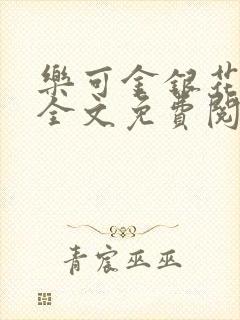 樂可金銀花
全文免費閱
青宸巫巫